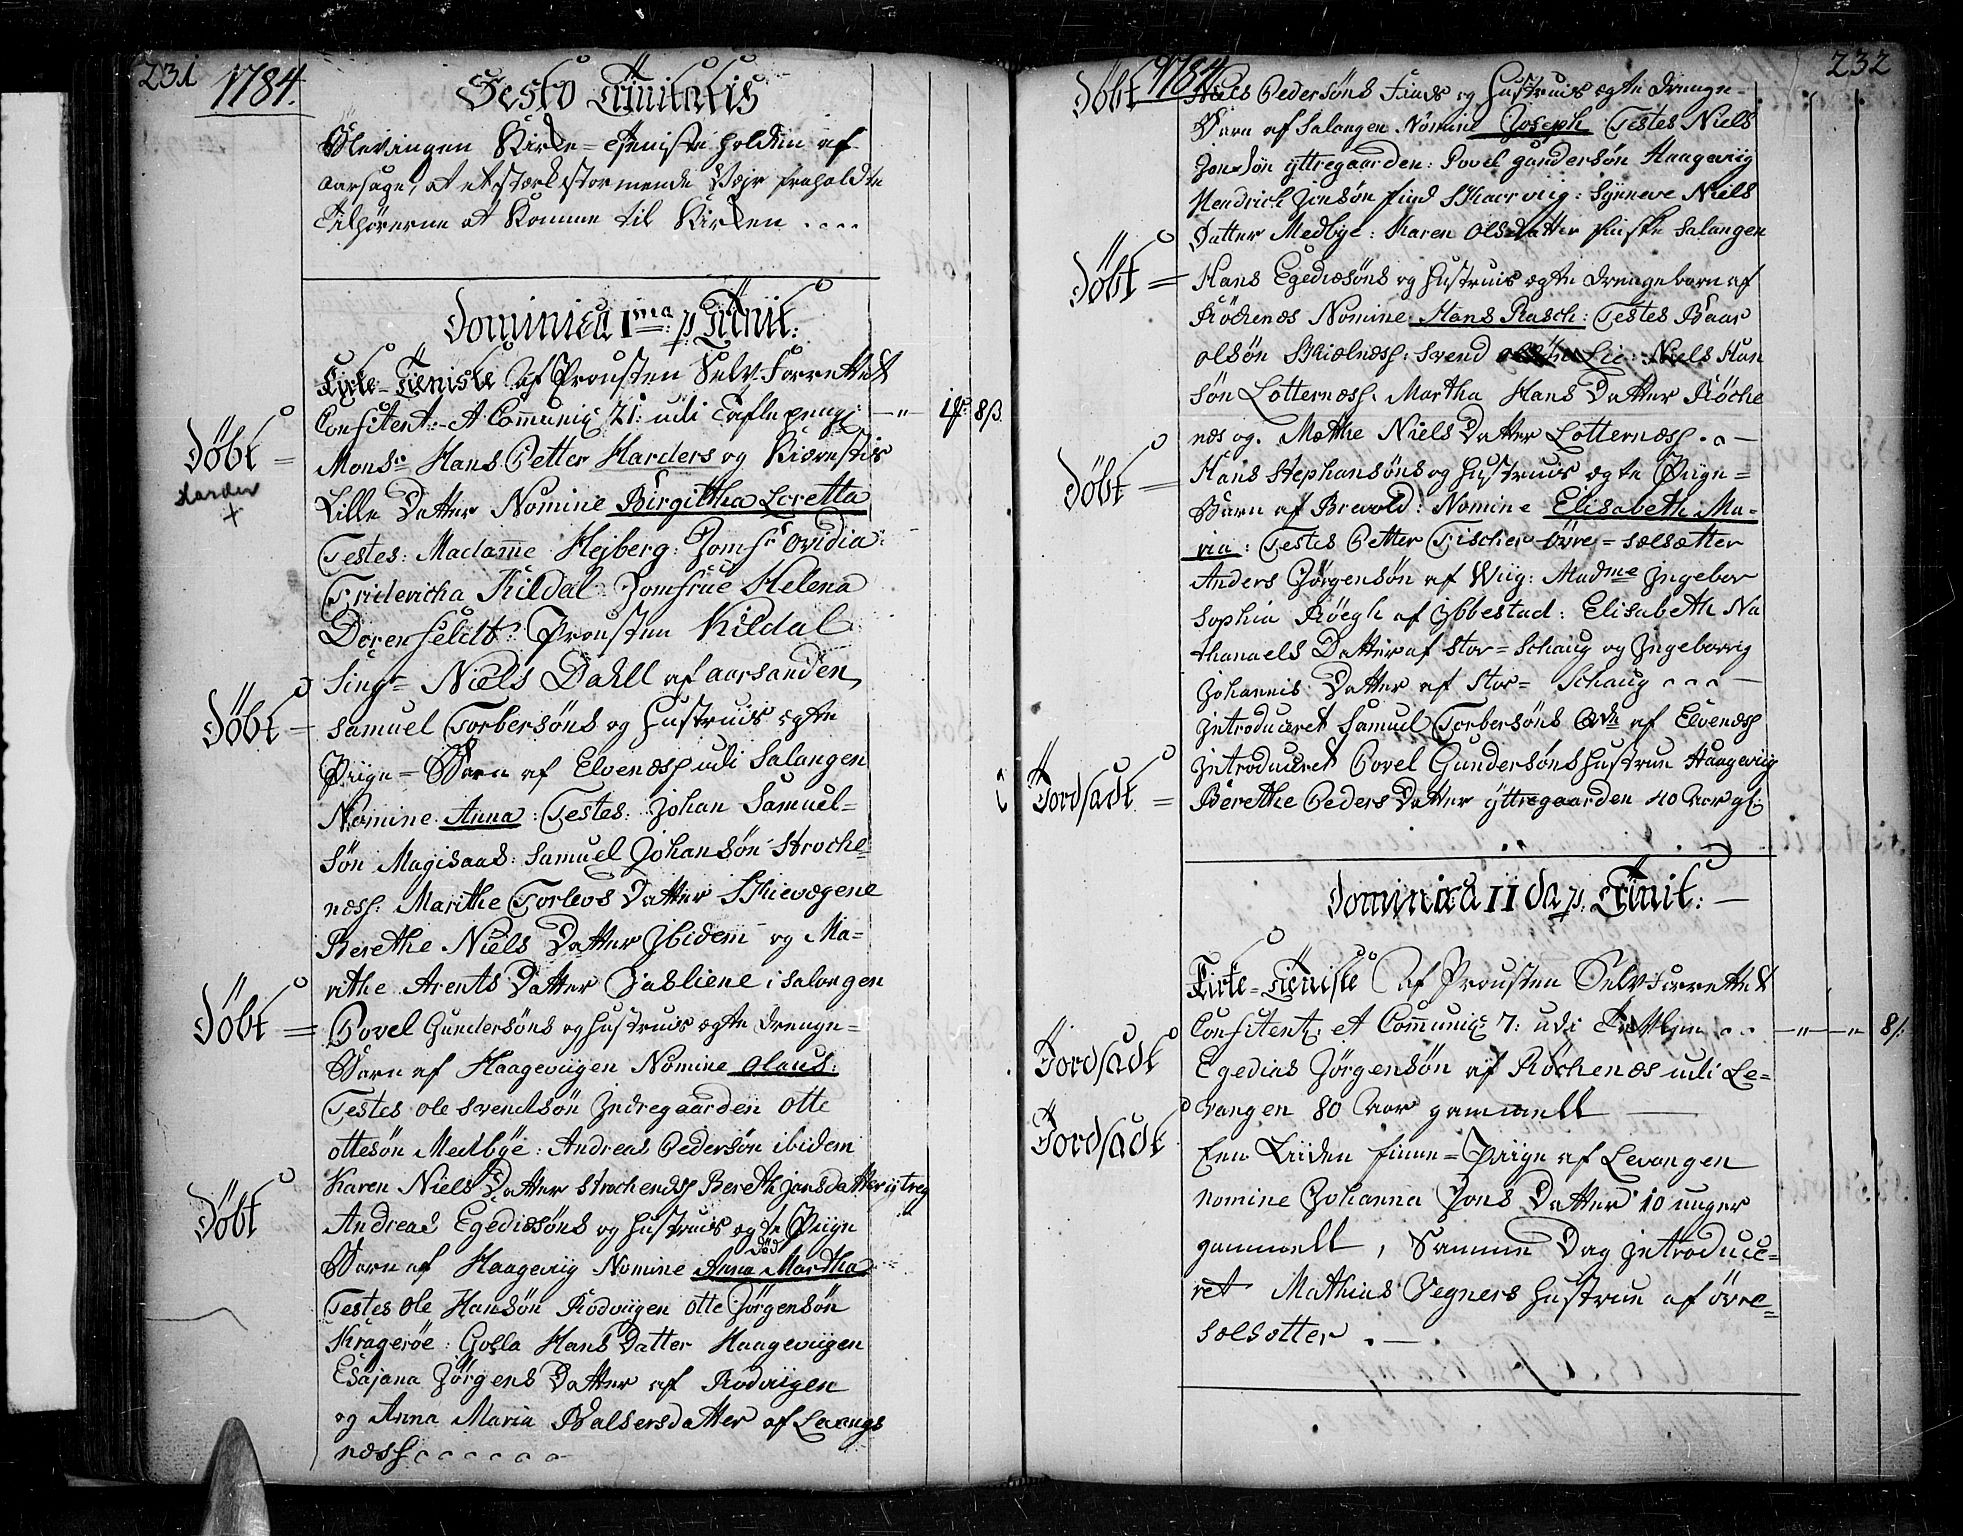 231
1784.
Festo Trinitatis
Blev ingen Kirke=Tieniste holden af
aarsage, at et stærk stormende Vejr forholdte
Tilhørerne at komme til Kirken ....
Dominica 1ma: p. Trinit:
Kirke=Tieniste af Prousten Selv Forrettet
Confitent: et Communic: 21: udi Taflepeng: —"— 8 ß
Døbt =
Harder
+
Monsr Hans Petter Harders og Kierestes
Lille Datter Nomine Birgitha Loretta
Testes: Madame Hejberg: Jomfr Ovidia
Fridericha Kildal Jomfrue Helena
Dorenfeldt: Prousten Kildal
Singr Niels Dahll af aarsanden
Døbt =
Samuel Torbersøns og Hustrues ægte
Piige=Barn af Elvenæss udi Salangen
Nomine Anna: Testes: Johan Samuel=
søn Magisaas: Samuel Johansøn Stroche=
næss: Marithe Torlevs Datter
Berethe Niels Datter Ibidem og Ma=
rithe Arents Datter i Salangen
Døbt =
Povel Gundersøns og Hustrues ægte Drenge=
Barn af Haageviigen Nomine Olaus:
Testes Ole Svendsøn Indregaarden Otte
Ottesøn Medbye: Andreas Pedersøn ibidem
Karen Niels Datter Strochenæss Bereth Jonsdatter ytreg
Døbt
Andreas Egediesøns og Hustrues ægte Piige
død
Barn af Haageviig Nomine Anna Martha
Testes Ole Hansøn Rodviigen Otte Jørgensøn
Kragerøe: Golla Hans Datter Haageviigen
Esajana Jørgens Datter af Rodviigen
og Anna Maria Balsersdatter af Levangs
næss
1784
232
Døbt
Niels Pedersøns Finds og Hustrues ægte Drenge=
Barn af Salangen Nomine Joseph Testes Niels
Jonsøn yttregaarden: Povel Gundersøn Haageviig
Hendrich Jonsøn find: Synneve Niels
Datter Medbye: Karen Olsdatter finske Salangen
Døbt =
Hans Egediesøns og Hustrues ægte Drengebarn af
Röchenæs Nomine Hans Rasch: Testes Baar
olsøn Skielnæss: Svend Lie: Niels Han
søn Lotternæss. Martha Hans Datter Röche
næs og. Mæthe Niels Datter Lotternæss.
Døbt =
Hans Stephansøns og Hustrues ægte Piige=
Barn af Bravold: Nomine Elisabeth Ma=
ria: Testes Petter Fischer øvre=Sælsætter
Anders Jørgensøn af Wiig: Madme Ingebor
Sophia Röegh af Ibbestad: Elisabeth Na
thanaels Datter af Stor=Schaug og Ingeborrig
Johannis Datter af Stor=Schaug
Introduceret Samuel Torbersøns af Elvenæss
Introduceret Povel Gundersøns Hustrue Haageviig
Jordsadt =
Berethe Peders Datter yttregaarden 40 Aar gl:
Dominica II da p. Trinit: —
Kirke=Tieniste af Prousten Selv Forrettet
Confitent: et Communic: 7: udi Taflen .. —"—"— 8 ß:
Jordsadt
Egedius Jørgensøn af Röchenæs udi Le=
vangen 80 Aar gammell —
Jordsadt
Een Liiden finne=Piige af Levangen
nomine Johanna Jons Datter 10 uuger
gammell, Samme Dag Introduce=
ret Mathias Vegners Hustrue af øvre=
Sælsætter